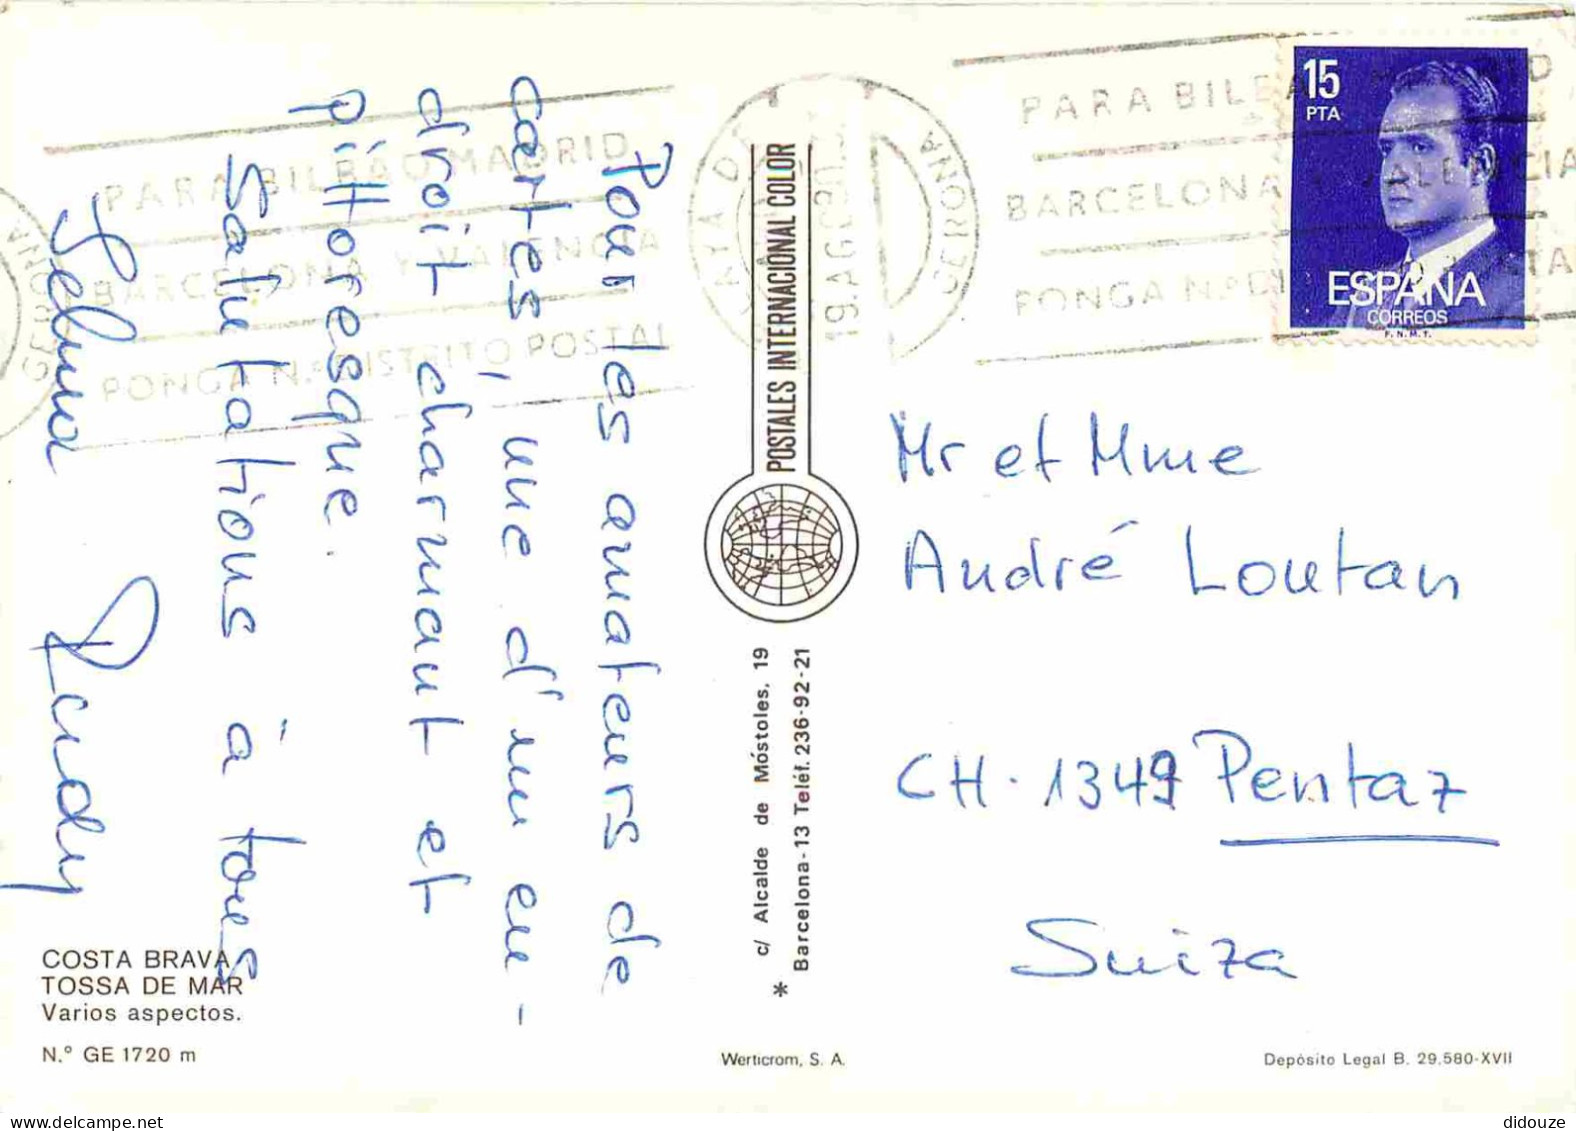 Pour les amateurs de
cartes, une d'un en-
droit charmant et
pittoresque.
Salutations à tous
Selma Rudy
COSTA BRAVA
TOSSA DE MAR
Varios aspectos.
N.º GE 1720 m
PARA BILBAO MADRID
BARCELONA Y VALENCIA
PONGA N.º DISTRITO POSTAL
GERONA
POSTALES INTERNACIONAL COLOR
c/ Alcalde de Móstoles, 19
Barcelona-13 Teléf. 236-92-21
*
Werticrom, S. A.
GERONA
19.AGO
PARA BILBAO MADRID
BARCELONA Y VALENCIA
PONGA N.º DISTRITO POSTAL
15
PTA
ESPAÑA
CORREOS
F.N.M.T.
Mr et Mme
André Loutan
CH-1349 Pentaz
Suiza
Depósito Legal B. 29.580-XVII
delcampe.net
didouze